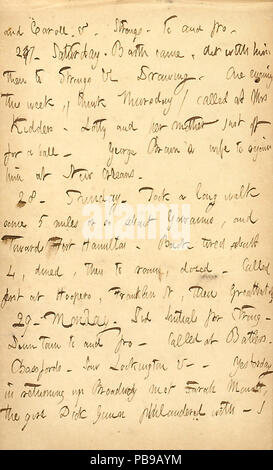 and Carroll. &. Strongs. To and fro.
27. Saturday. Banks came, out with him
then to Strongs &c Drawing. One evening
this week, I think Thursday I called at Mrs
Kidders. Lotty and her mother just off
for a ball. George Brown's wife to rejoin
him at New Orleans.
28. Sunday. Took a long walk
some 5 miles or so about Gowanus, and
toward Fort Hamilton. Back tired about
4, dined, then to room, dozed. Called
first at Hoopers, Franklin St, then
29. Monday. Did Initials for Strong.
Down town to and fro. Called at Butlers.
Bassfords. Saw Lockington &. Yesterday
in returning up Broadway met Sarah
the girl Dick Gunn philandered with. I
alamy
Image ID: PB9AYM
www.alamy.com